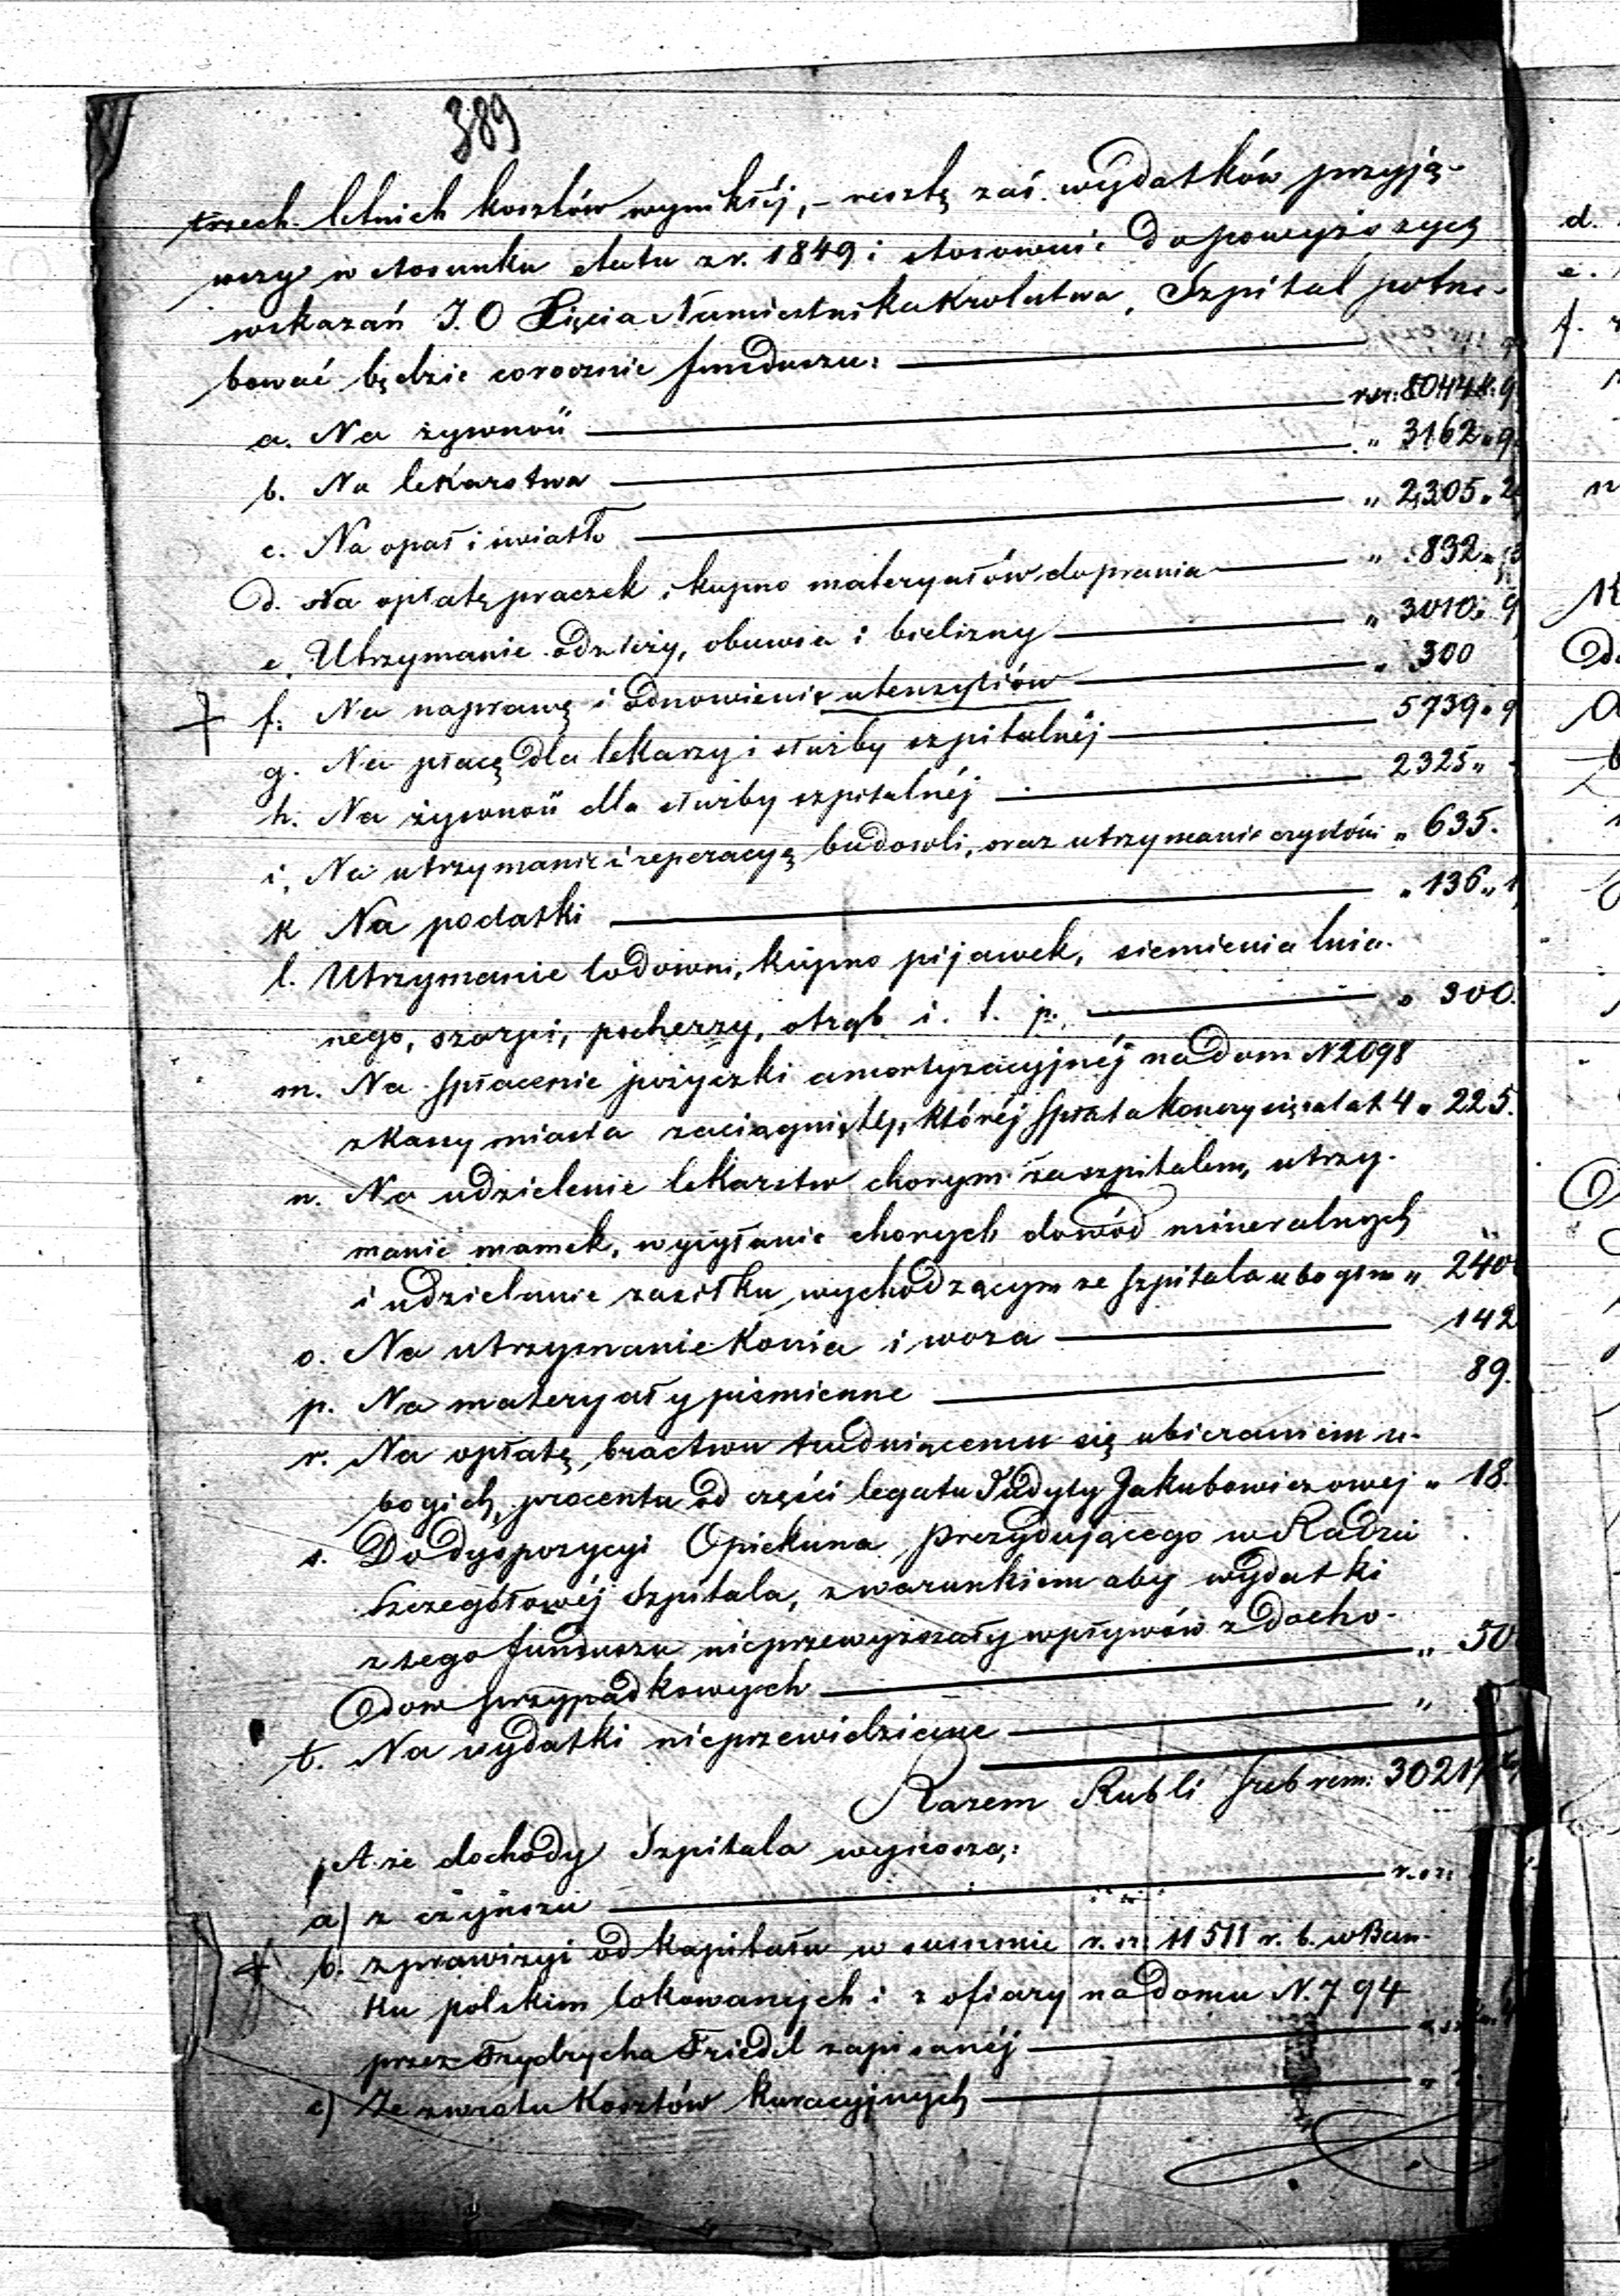 389
trzech-letnich kosztów wynikłéj, - resztę zaś wydatków przyją-
wszy w stosunku etatu z r. 1849 i stosownie do powyższych
wskazań J. O Xięcia Namiestnika Królestwa, Szpital potrze-
bować będzie corocznie funduszu:
a. Na żywność rsr: 10448. 9
b. Na lekarstwa " 3162 " 9
c. Na opał i światło " 2305 " 2
d. Na opłatę praczek i kupno materyałów do prania " 832 "
e. Utrzymanie odzieży, obuwia i bielizny " 3010 " 9
f. Na naprawę i odnowienie utensyliów " 300
g. Na płacę dla lekarzy i służby szpitalnéj 5739 " 9
h. Na żywność dla służby szpitalnéj 2325 "
i. Na utrzymanie i reperacyę budowli, oraz utrzymanie czystości " 635.
k Na podatki " 136 " 1
l. Utrzymanie lodowni, kupno pijawek, siemienia lnia-
nego, szarpi, pęcherzy, otrąb i. t. p. " 300.
m. Na spłacenie pożyczki amortyzacyjnéj na dom N 2098
z kassy miasta zaciągniętéj, któréj spłata kończy się za lat 4 " 225.
n. Na udzielenie lekarstw chorym za szpitalem, utrzy-
manie mamek, wysyłanie chorych do wód mineralnych
i udzielanie zasiłku wychodzącym ze szpitala ubogim " 240
o. Na utrzymanie konia i woza 142
p. Na materyały piśmienne 89.
r. Na opłatę bractwu trudniącemu się ubieraniem u-
bogich, procentu od części legatu Judyty Jakubowiczowej " 18.
s. Do dyspozycyi Opiekuna Prezydującego w Radzie
Szczegółowéj Szpitala, z warunkiem aby wydatki
z tego funduszu nieprzewyższały wpływów z docho-
dow przypadkowych " 50
t. Na wydatki nieprzewidziane "
Razem Rubli srebrem: 30217
A że dochody Szpitala wynoszą:
a) z czynszu r. sr:
b. z prowizyi od kapitału w summie r. sr. 11511 r. b. w Ban-
ku polskim lokowanych i z ofiary na domu N. 794
przez Frydrycha Friedel zapisanéj
c) Ze zwrotu kosztów kuracyjnych "